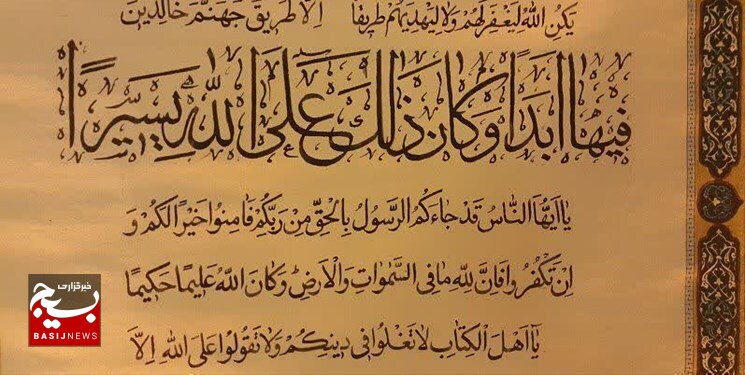 يَكُنِ اللهُ لِيَغْفِرَ لَهُمْ وَلَا لِيَهْدِيَهُمْ طَرِيقًا إِلَّا طَرِيقَ جَهَنَّمَ خَالِدِينَ
فِيهَا أَبَدًا وَكَانَ ذَلِكَ عَلَى اللهِ يَسِيرًا
يَا أَيُّهَا النَّاسُ قَدْ جَاءَكُمُ الرَّسُولُ بِالْحَقِّ مِنْ رَبِّكُمْ فَامِنُوا خَيْرًا لَكُمْ وَ
اِنْ تَكْفُرُوا فَاِنَّ لِلهِ مَا فِي السَّمٰوَاتِ وَالْاَرْضِ وَكَانَ اللهُ عَلِيمًا حَكِيمًا
يَا اَهْلَ الْكِتَابِ لَا تَغْلُوا فِي دِينِكُمْ وَلَا تَقُولُوا عَلَى اللهِ اِلَّا
خبرگزاری
بسیج
BASIJNEWS